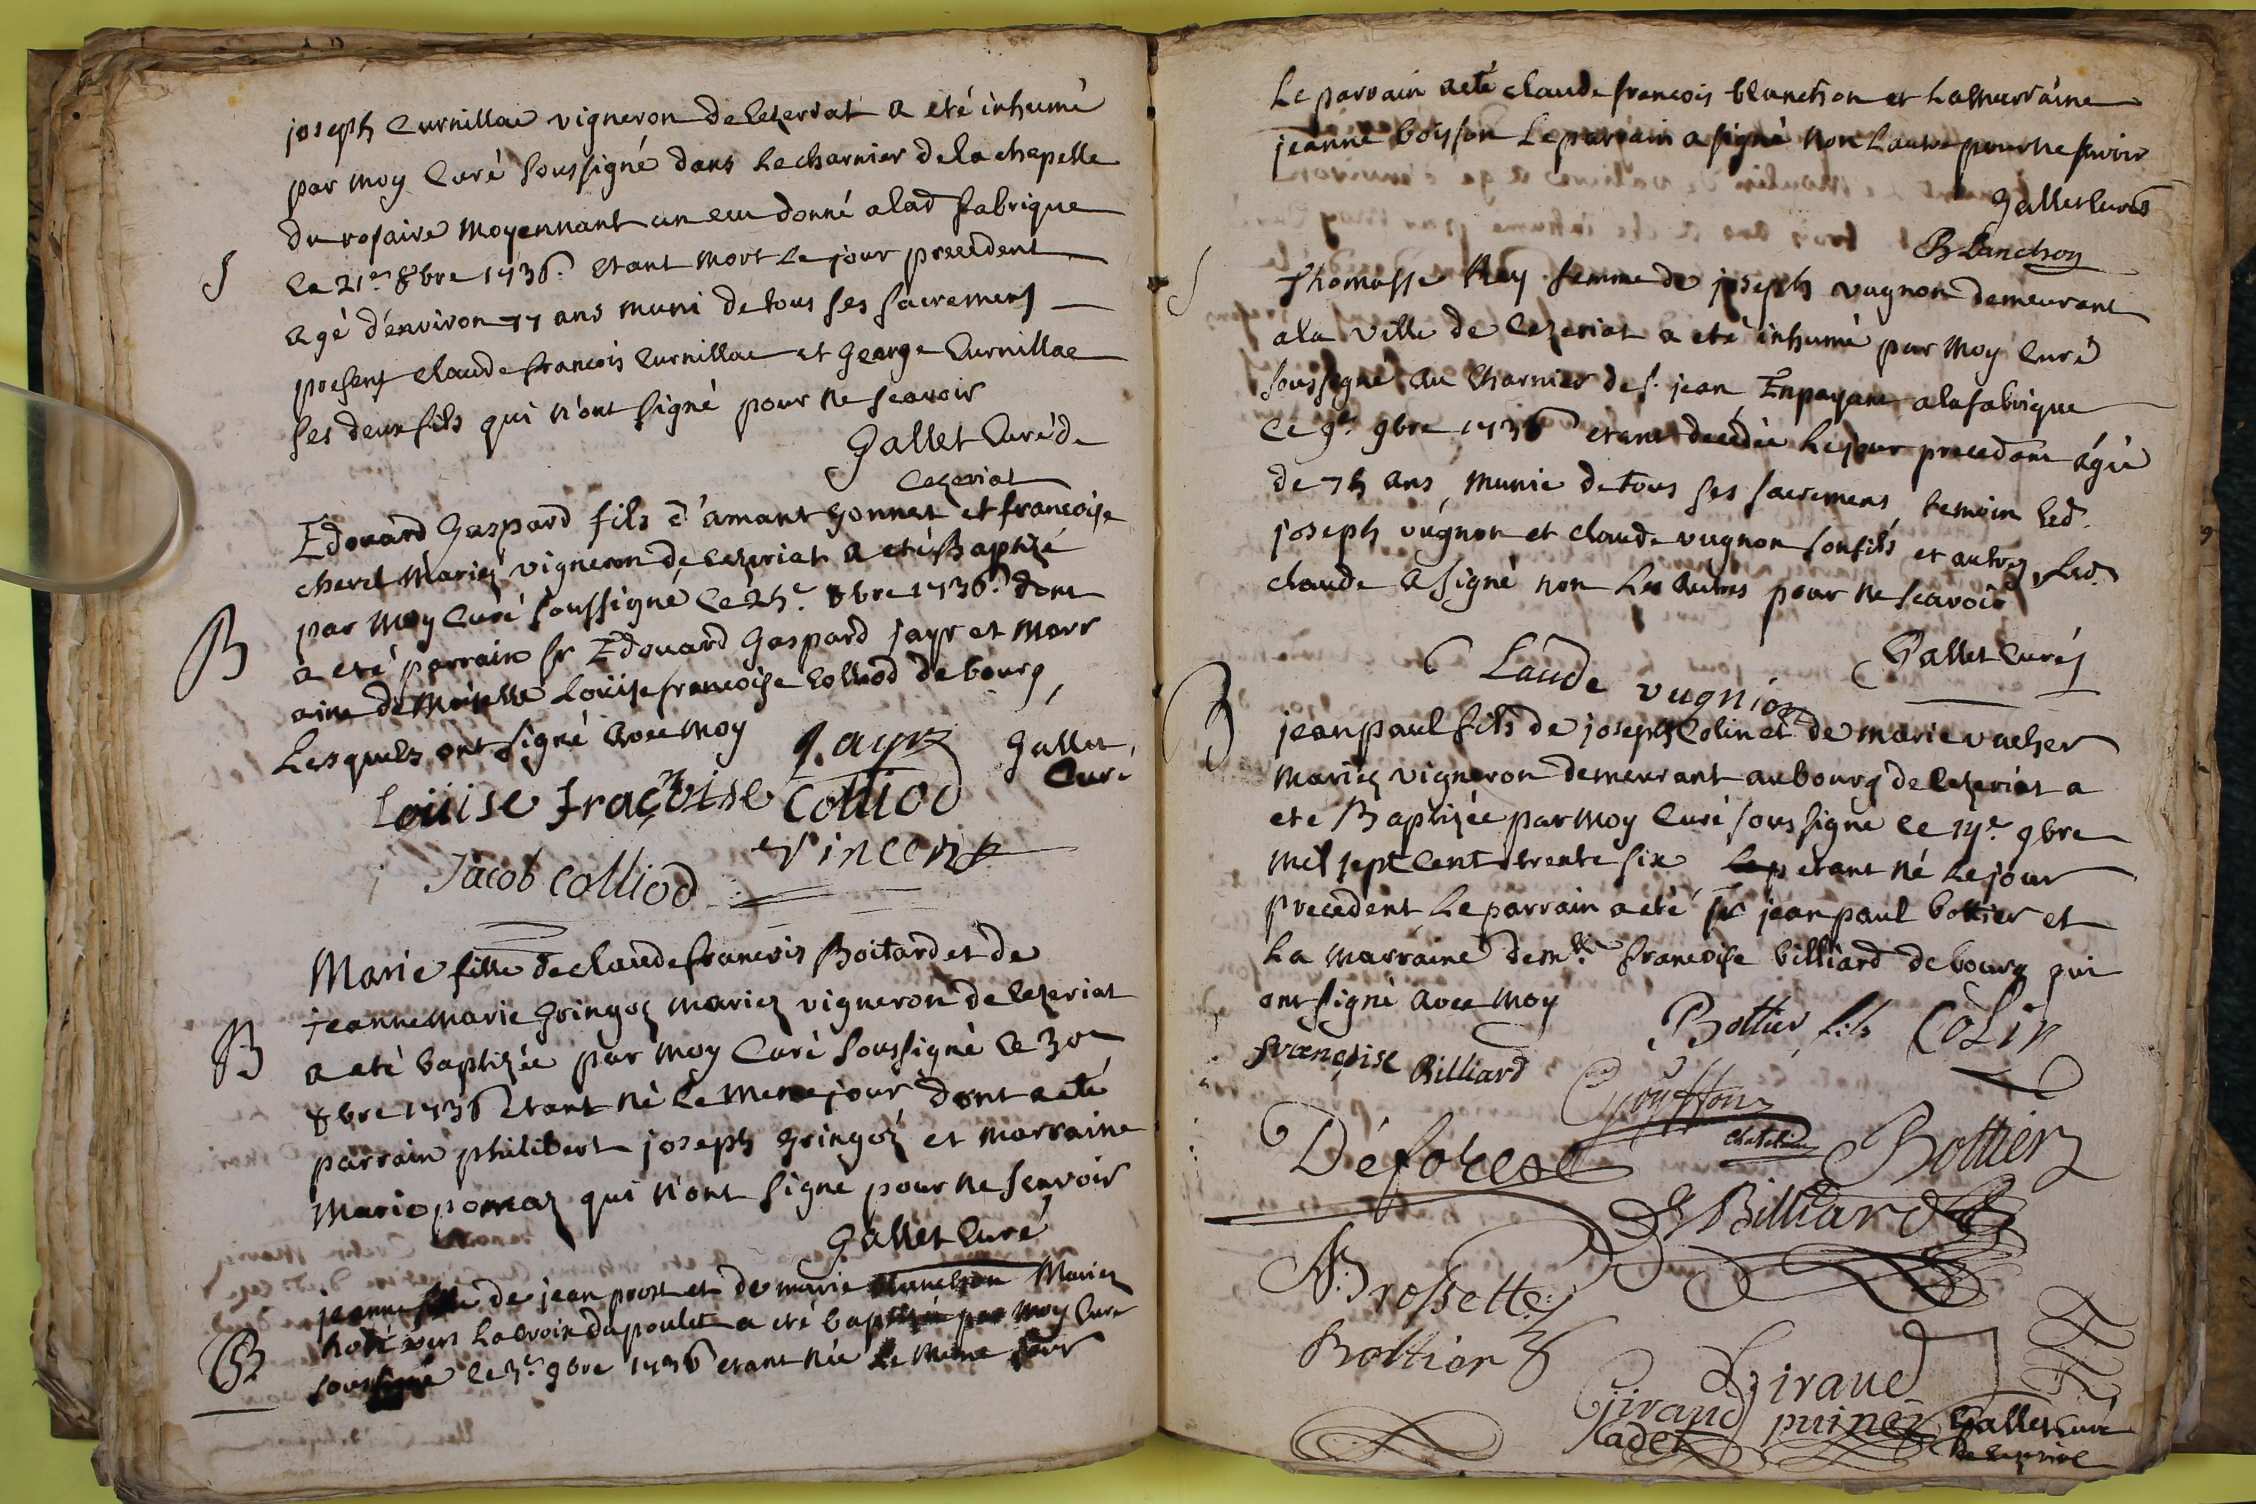 joseph Curnillac vigneron de Cezeriat a eté inhumé
par moy Curé Soussigné dans Le charnier de la chapelle
du rosaire Moyennant un ecu donné a lad fabrique
S
Ce 21e. 8bre 1736. Etant mort Le jour precedent
agé d'environ 77 ans muni de tous ses sacremens
presens claude francois Curnillac et George Curnillac
ses deux fils qui n'ont signé pour ne scavoir
Gallet Curé de
Cezeriat
Edouard Gaspard fils d'amant Gonnet et francoise
cheret Mariez vigneron de Cezeriat a eté Baptizé
par Moy Curé soussigné Ce 25e. 8bre 1736. dont
B
a eté parrain sr Edouard Gaspard jayr et Marr
aine demoiselle Louise francoise Colliod de bourg,
Lesquels ont signé avec moy
Jayr
Gallet
Curé
Loüise Fraçoise Colliod
Vincent
Jacob Colliod
Marie fille de claude francois Boitard et de
jeanne marie Gringoz mariez vigneron de Cezeriat
B
a eté baptizée par moy Curé soussigné Ce 30e
8bre 1736 Etant né Le meme jour dont a eté
parrain philibert joseph Gringoz et marraine
Marie poncaz qui n'ont signé pour ne scavoir
Gallet Curé
jeanne fille de jean prost et de marie Mariez
vers La croix du poulet a eté baptizée par moy Curé
B
soussigné Ce 3e. 9bre 1736 etant née Le meme jour
Le parrain a eté claude francois blanchon et La Marraine
jeanne boisson Le parrain a signé non L'autre pour ne scavoir
Gallet Curé
Blanchon
S
Thomasse Rey femme de joseph vugnon demeurant
a la ville de Cezeriat a eté inhumé par moy Curé
soussigné au Charnier de s. jean En payant a la fabrique
Ce 9e. 9bre 1736 etant decedée Le jour precedent agée
de 75 ans, munie de tous ses sacremens temoin Led.
joseph vugnon et claude vugnon son fils et autres Led.
claude a signé non Les autres pour ne scavoir
Gallet Curé
Claude vugnion
B
jean paul fils de joseph Colin et de marie vucher
Mariez vigneron demeurant au bourg de Cezeriat a
eté Baptizée par Moy Curé soussigné Ce 14e. 9bre
Mil sept Cent trente six Le p etant né Le jour
precedent Le parrain a eté sr jean paul bottier et
La marraine demlle francoise billiard de bourg qui
ont signé avec moy
Bottier fils
Colin
françoise Billiard
Déforest
Bottier
Billiard
Brossette
Bottier
Giraud
Giraud
cadet
puiner
Gallet Curé